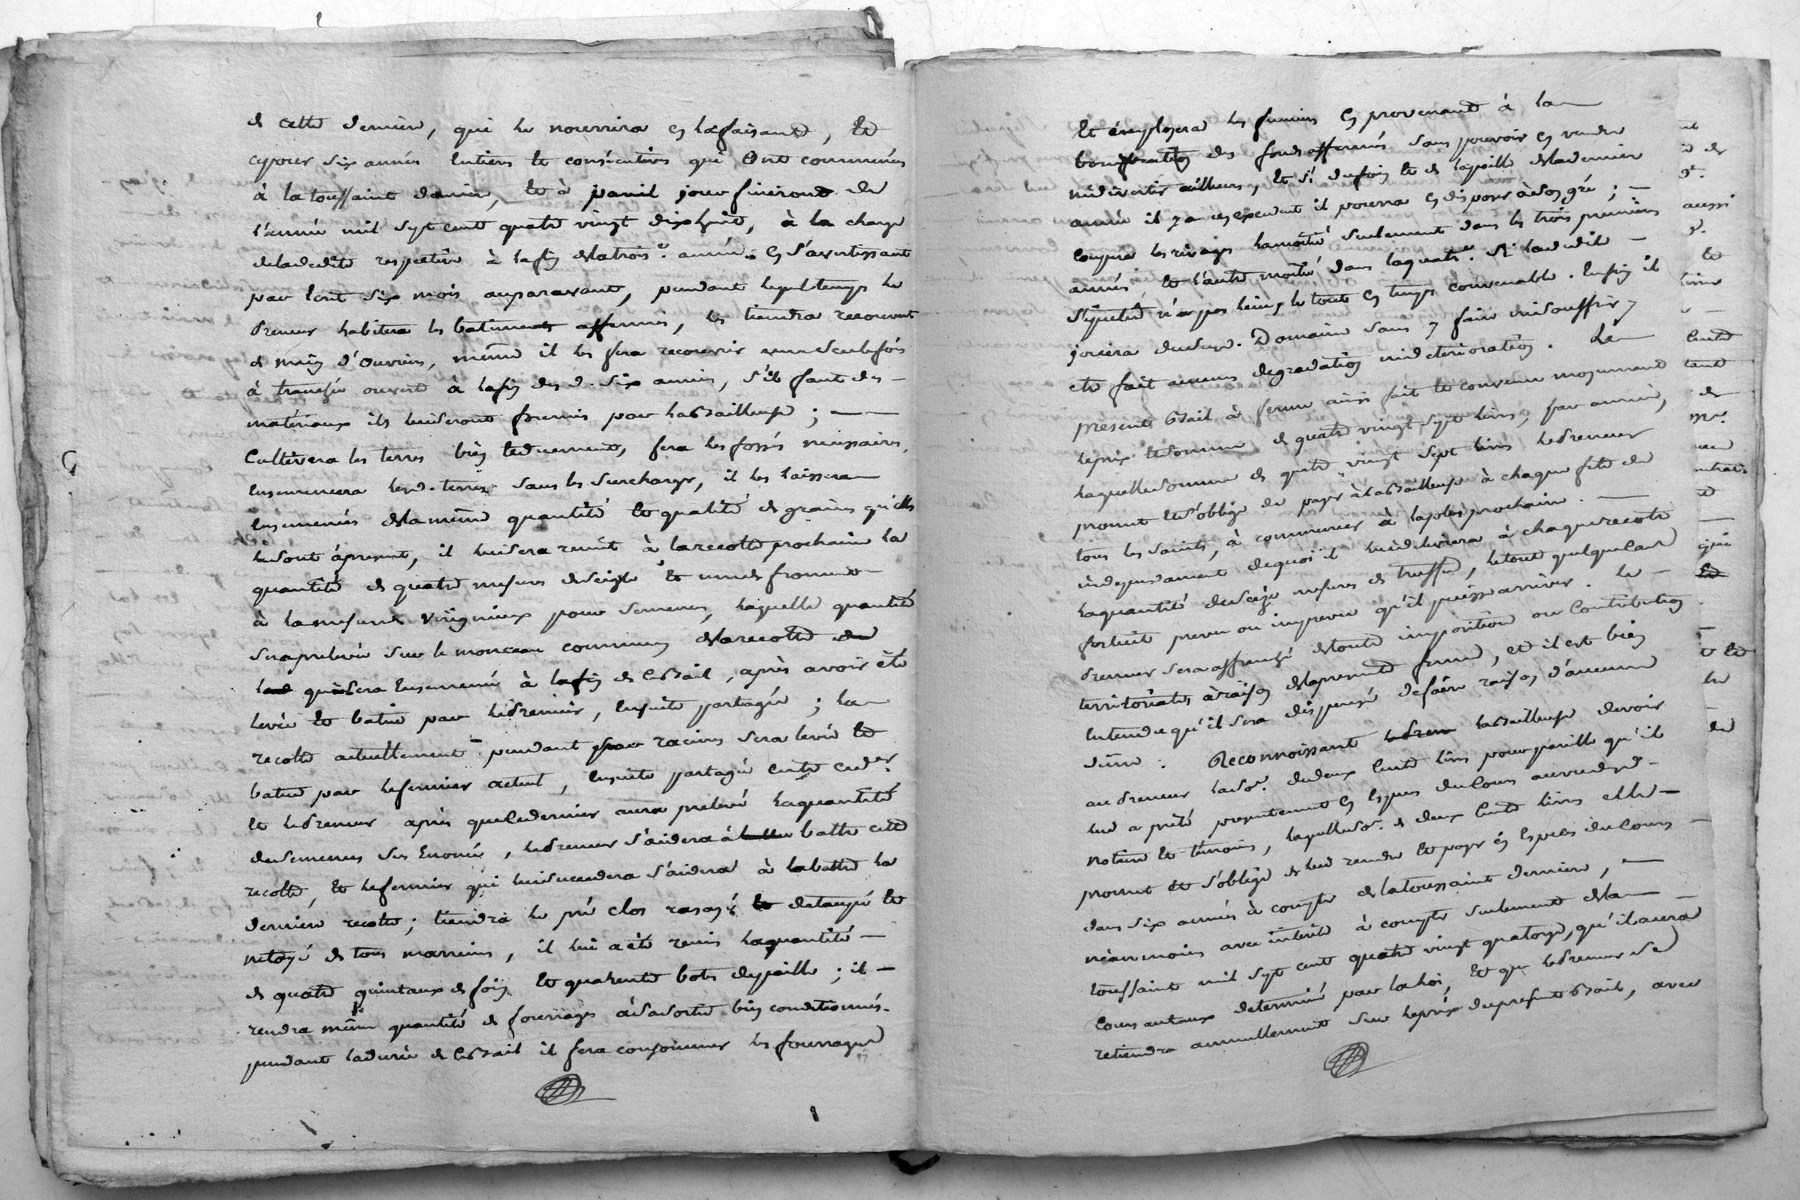 de cette derniere, qui le nourrira en le faisant, et
ce pour six années entieres et consécutives qui ont commencés
à la toussaint derniere, et à pareil jour finiront de
l'année mil sept cent quatre vingt dix huit, à la charge
de la dedite respective à la fin de la trois.e année en s'avertissant
par écrit six mois auparavant, pendant lequel temps le
preneur habitera les batiments affermés, les tiendra recouvert
de main d'ouvrier, même il les fera recouvrir une seule fois
à tranchée ouverte à la fin des d. six années, s'il faut des
matériaux ils lui seront fournis par la bailleuse ;
Cultivera les terres bien et duement, fera les fossés nécessaires,
ensemencera lesd. terres sans les surcharger, il les laissera
ensemencés de la même quantité et qualité de grains qu'elles
le sont à present, il lui sera remit à la recolte prochaine la
quantité de quatre mesures de seigle et une de froment
à la mesure de Virignieux pour semences, laquelle quantité
sera prelevée sur le monceau commun de la recolte de
qui sera ensemencé à la fin de ce bail, après avoir été
levée et batue par le preneur, ensuite partagée ; la
recolte actuellement pendant par racines sera levée et
batue par le fermier actuel, ensuite partagée entre ce der.
et le preneur après que ce dernier aura prelevé la quantité
de semences sus énoncée, le preneur s'aidera à battre cette
recolte, et le fermier qui lui succedera s'aidera à la battre la
derniere recolte ; tiendra le pré clos rasé et detaupé et
netoyé de tous marreins, il lui a été remis la quantité
de quatre quintaux de foin et quarente bots de paille ; il
rendra même quantité de fourrages à sa sortie bien conditionnés.
pendant la durée de ce bail il fera consommer les fourrages
Et employera les fumiers en provenant à la
bonification des fonds affermés sans pouvoir en vendre
ni divertir ailleurs, et si du foin et de la paille de la derniere
année il y a un excedent il pourra en disposer à son gré ;
coupera les rivages la moitié seulement dans les trois premieres
années et l'autre moitié dans la quatr.e si la dedite
stipulée n'a pas lieu, le tout en temps convenable. Enfin il
jouira dud. Domaine sans y faire ni souffrir y
etre fait aucune degradation ni deterioration. Le
présent Bail à ferme ainsi fait et convenu moyennant
le prix et somme de quatre vingt sept livres, par année,
laquelle somme de quatre vingt sept livres le preneur
promet et s'oblige de payer à la bailleuse à chaque fete de
tous les saints, à commencer à la plus prochaine.
indépendament de quoi il lui delivrera à chaque recolte
la quantité de seize mesures de truffes, le tout quelque cas
fortuit prevu ou imprevu qu'il puisse arriver. Le
preneur sera affranchi de toute imposition ou contribution
territoriales à raison de la presente ferme, et il est bien
entendu qu'il sera dispensé de faire raison d'aucune
dime. Reconnoissant la bailleuse devoir
au preneur la so.e de deux cents livres pour pareille qu'il
lui a prêté presentement en especes du cours au vu des d.
notaire et temoins, laquelle so.e de deux cents livres elle
promet et s'oblige de lui rendre et payer en especes du cours
dans six années à compter de la toussaint derniere,
néanmoins avec intérêt à compter seulement de la
toussaint mil sept cent quatre vingt quatorze, qu'il aura
cours au taux determiné par la loi, et que le preneur se
retiendra annuellement sur le prix du present Bail, avec